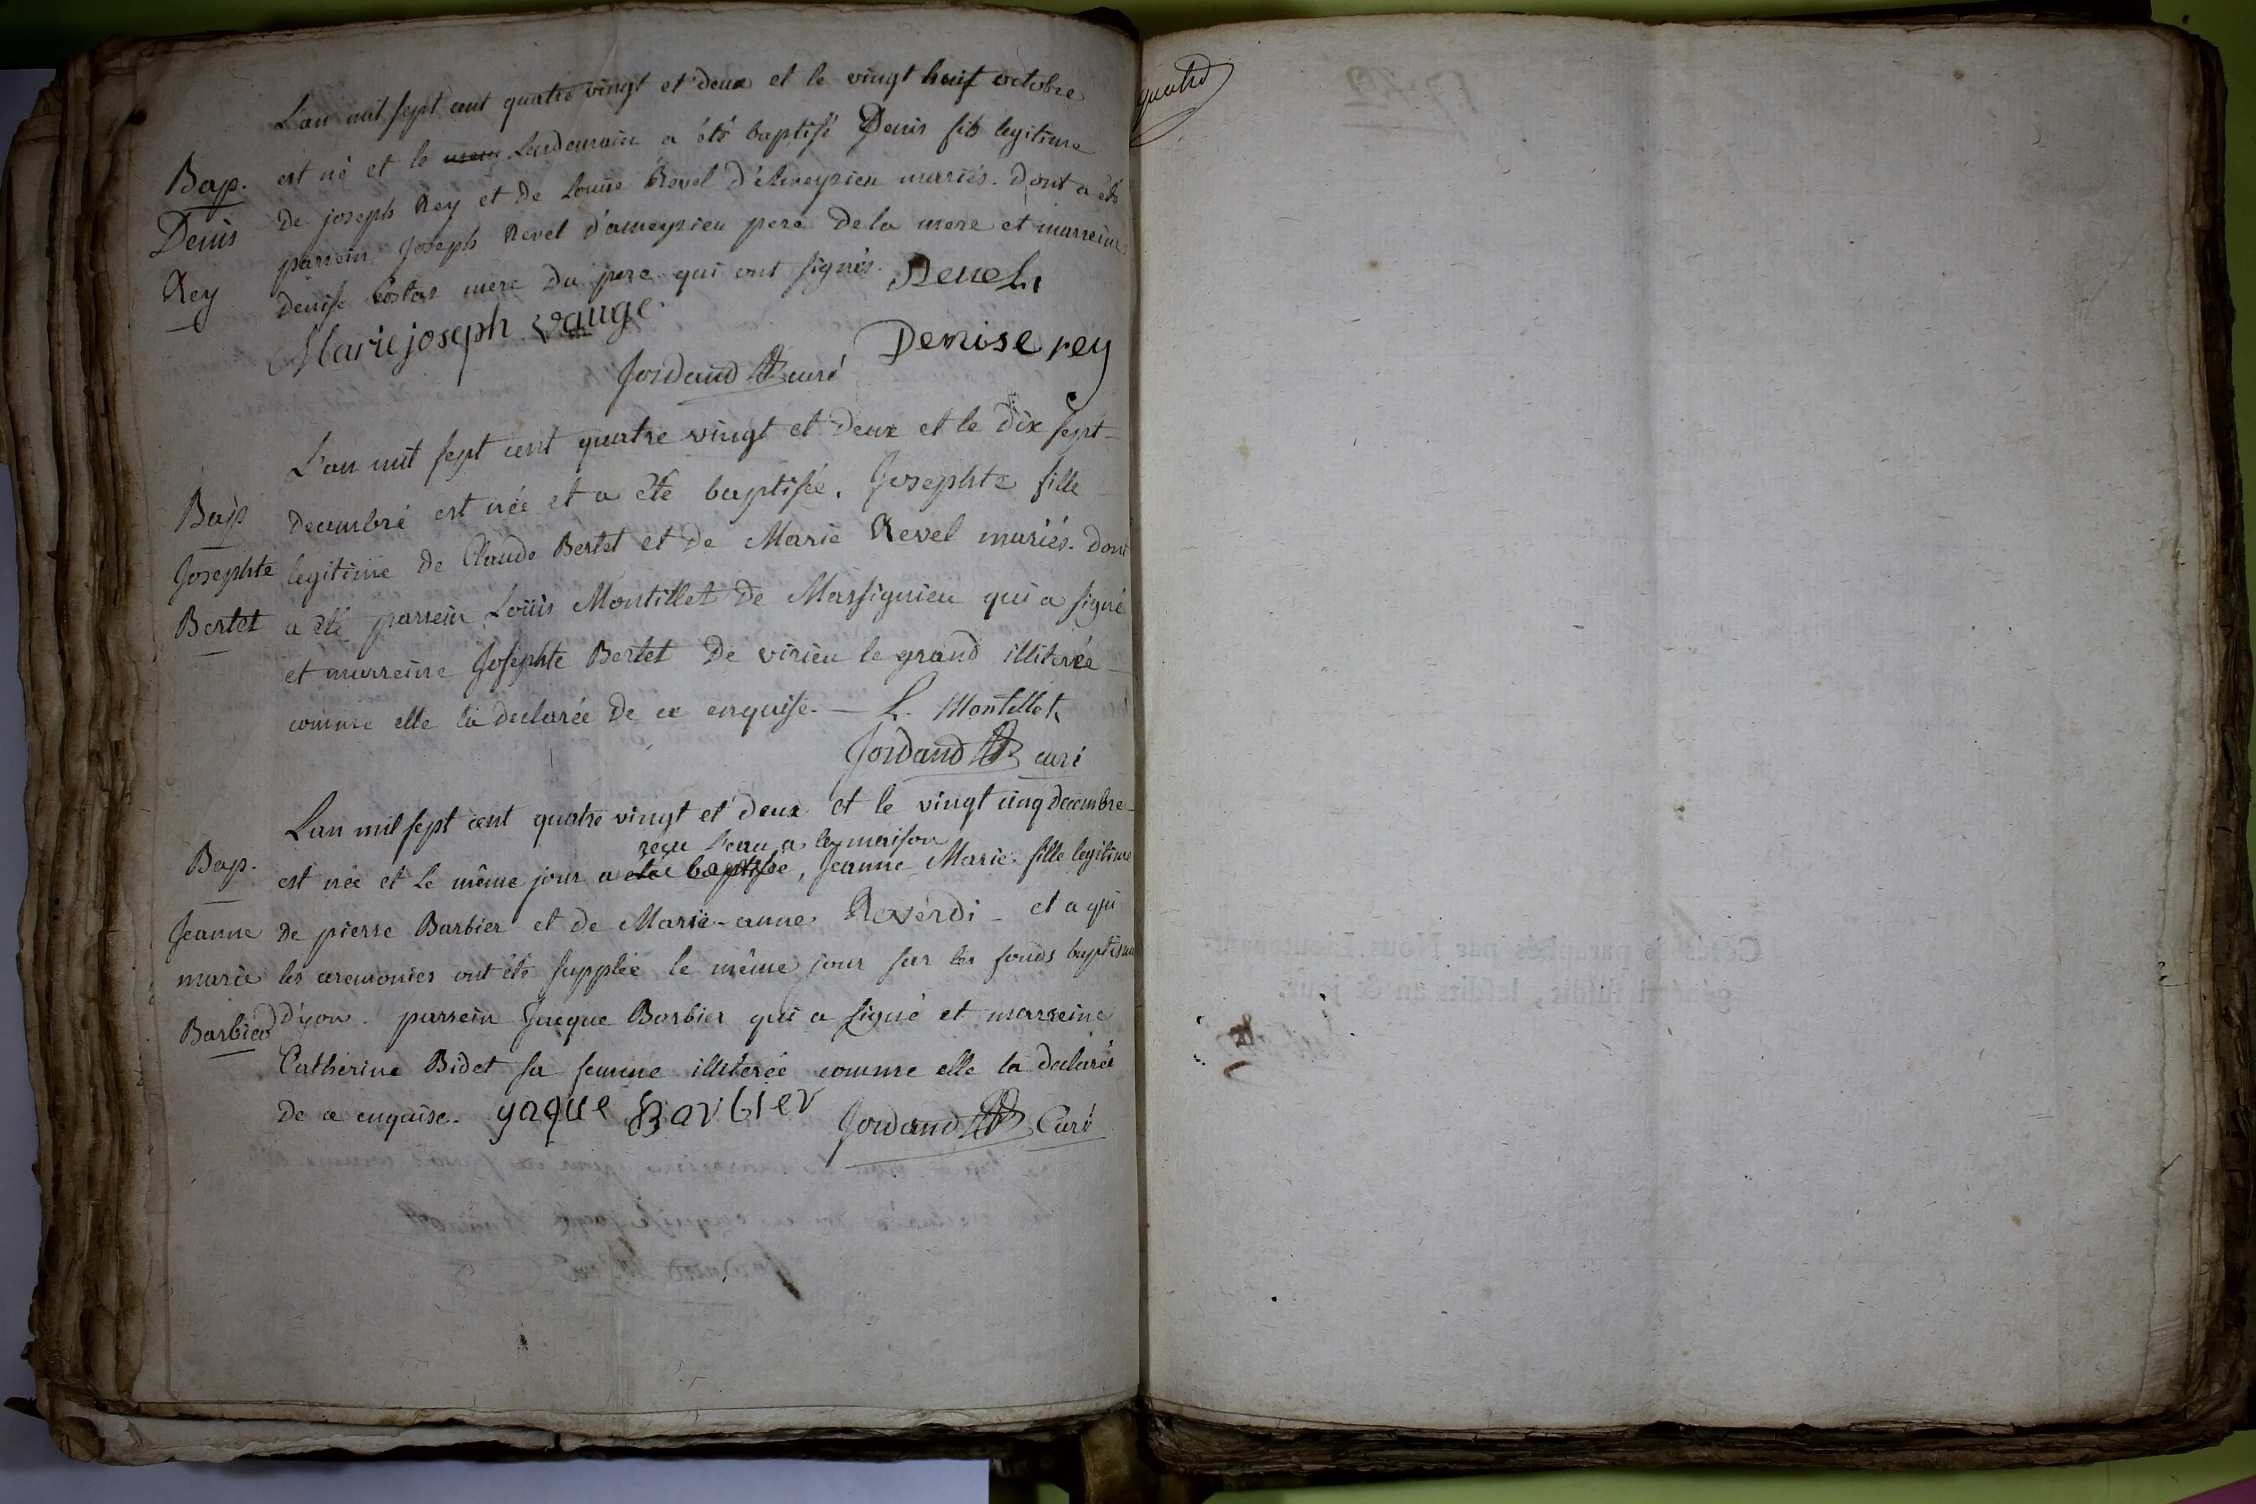 L'an mil sept cent quatre vingt et deux et le vingt huit octobre
Bap. est né et le Lendemain a été baptisé Denis fils legitime
Denis de joseph Rey et de Louise Revel d'Ameyzieu mariés. dont a été
Rey parrein Joseph Revel d'ameyzieu pere de la mere et marreine
denise mere du pere qui ont signés. Revel
Marie joseph vauge
Denise rey
Jordand curé
quatre
L'an mil sept cent quatre vingt et deux et le dix sept
Bap decembre est née et a été baptisée, Josephte fille
Josephte legitime de Claude Bertet et de Marie Revel mariés. dont
Bertet a été parrein Loüis Montillet de Massignieu qui a signé
et marreine Josephte Bertet de virieu le grand illiterée
comme elle la declarée de ce enquise. L. Montillet
Jordand curé
Lan mil sept cent quatre vingt et deux et le vingt cinq decembre
reçu l'eau a la maison
Bap. est née et le même jour a été baptisée, Jeanne Marie fille legitime
Jeanne de pierre Barbier et de Marie-anne Reverdi - et a qui
marie les ceremonies ont été supplée le même jour sur les fonds baptismau
Barbier d'yon. parrein Jacque Barbier qui a signé et marreine
Catherine Bidet sa femme illiterée comme elle la declarée
de ce enquise. yaque Barbier Jordand Curé